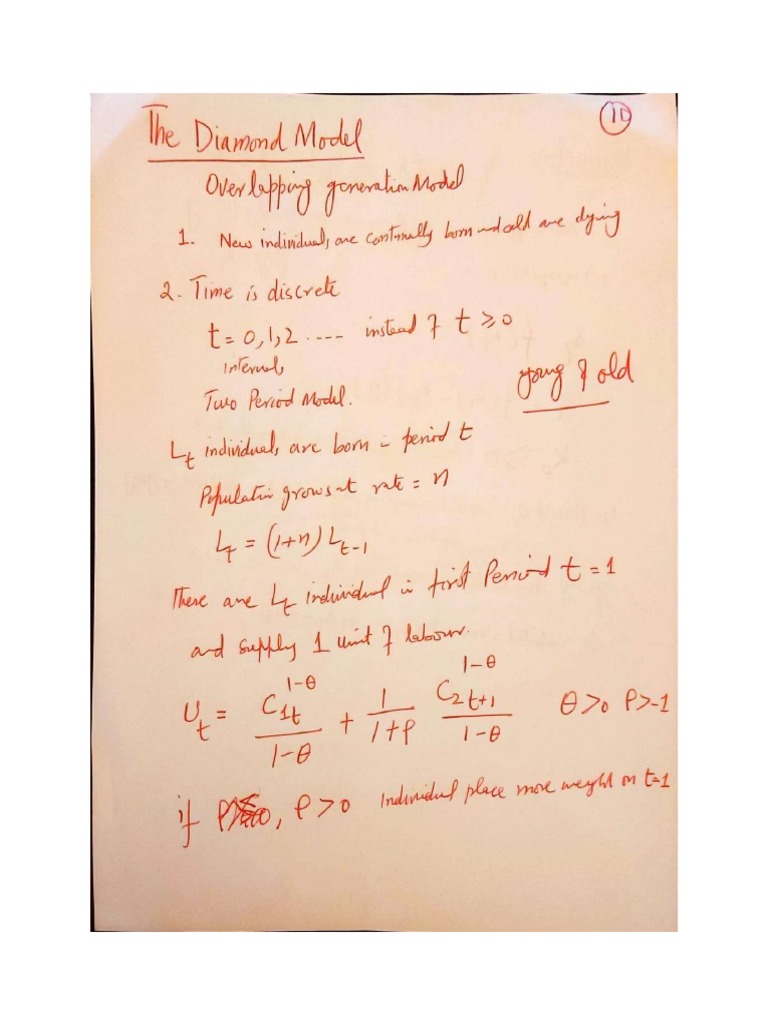 The Diamond Model
10
Overlapping generation Model
1. New individuals are continually born and old are dying
2. Time is discrete
t = 0, 1, 2 ..... instead of t ≥ 0
intervals
young & old
Two Period Model.
L_t individuals are born in period t
Population grows at rate = n
L_t = (1+n) L_{t-1}
There are L_t individual in first Period t = 1
and supply 1 unit of labour.
U_t = C_{1t}^{1-θ} / (1-θ) + 1/(1+ρ) C_{2t+1}^{1-θ} / (1-θ) θ>0 ρ>-1
if ρ>0 Individual place more weight on t=1